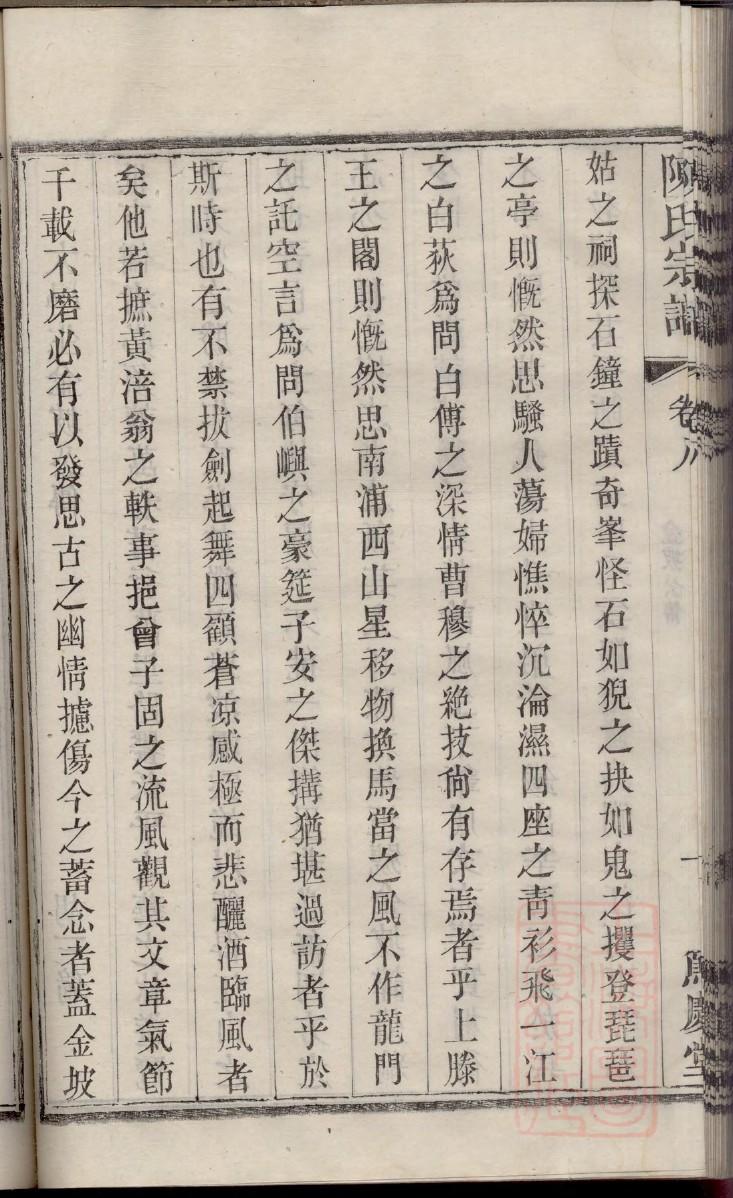 陳氏宗譜
卷八
一
篤慶堂
姑之祠探石鐘之蹟奇峯怪石如猊之抉如鬼之攫登琵琶
之亭則慨然思騷人蕩婦憔悴沉淪濕四座之靑衫飛一江
之白荻爲問白傅之深情曹穆之絕技尙有存焉者乎上滕
王之閣則慨然思南浦西山星移物換馬當之風不作龍門
之託空言爲問伯嶼之豪筵子安之傑搆猶堪過訪者乎於
斯時也有不禁拔劍起舞四顧蒼凉感極而悲釃酒臨風者
矣他若摭黃涪翁之軼事挹曾子固之流風觀其文章氣節
千載不磨必有以發思古之幽情攄傷今之蓄念者蓋金坡